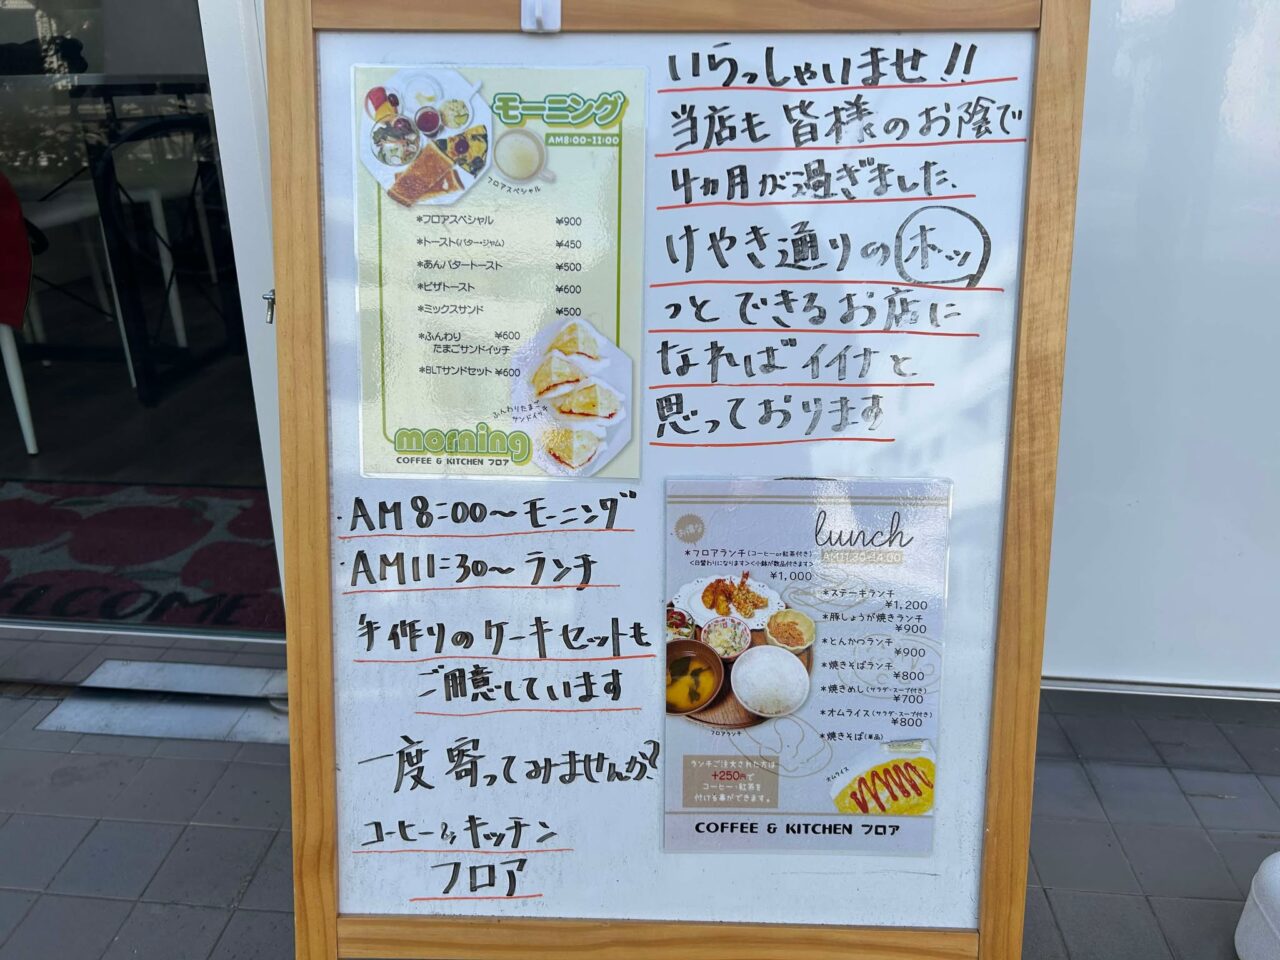 モーニング
AM8:00-11:00
フロアスペシャル
*フロアスペシャル ¥900
*トースト(バター・ジャム) ¥450
*あんバタートースト ¥500
*ピザトースト ¥600
*ミックスサンド ¥500
*ふんわり ¥600
たまごサンドイッチ
*BLTサンドセット ¥600
ふんわりたまご
サンドイッチ
morning
COFFEE & KITCHEN フロア
いらっしゃいませ!!
当店も皆様のお陰で
4ヵ月が過ぎました、
けやき通りのホッ
っとできるお店に
なればイイナと
思っております
・AM8:00〜モーニング
・AM11:30〜ランチ
手作りのケーキセットも
ご用意しています
一度寄ってみませんか?
コーヒー&キッチン
フロア
お得な
lunch
AM11:30-14:00
*フロアランチ(コーヒーor紅茶付き)
<日替わりになります><小鉢が数品付きます>
¥1,000
*ステーキランチ
¥1,200
*豚しょうが焼きランチ
¥900
*とんかつランチ
¥900
*焼きそばランチ
¥800
*焼きめし(サラダ・スープ付き)
¥700
*オムライス(サラダ・スープ付き)
¥800
*焼きそば(単品)
フロアランチ
オムライス
ランチご注文された方は
+250円で
コーヒー・紅茶を
付ける事ができます。
COFFEE & KITCHEN フロア
WELCOME